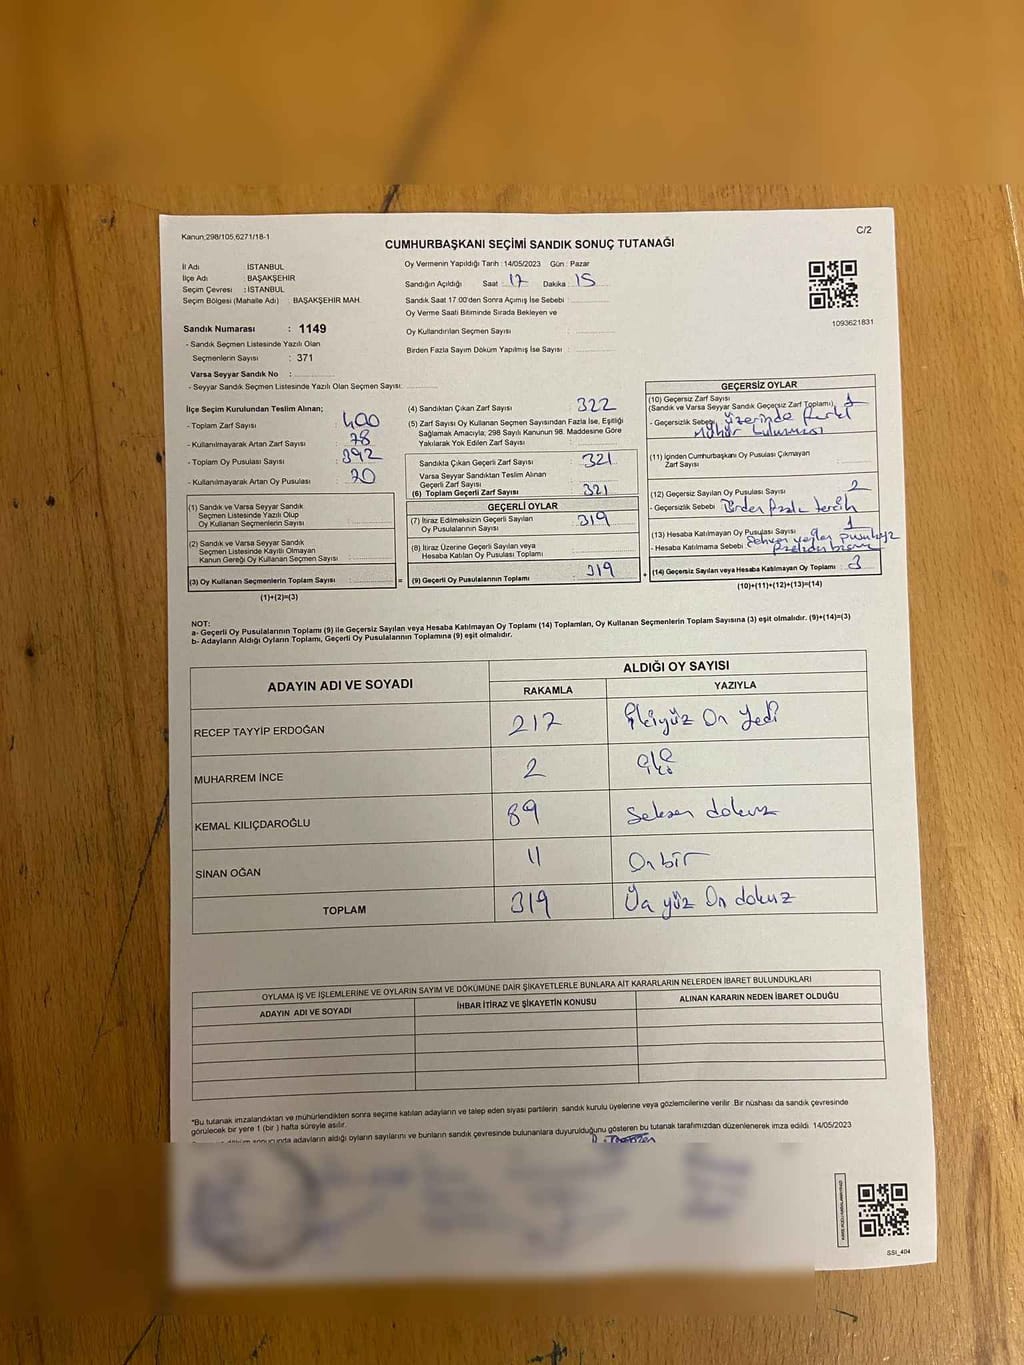 Kanun;298/105,6271/18-1
C/2
CUMHURBAŞKANI SEÇİMİ SANDIK SONUÇ TUTANAĞI
İl Adı : İSTANBUL
İlçe Adı : BAŞAKŞEHİR
Seçim Çevresi : İSTANBUL
Seçim Bölgesi (Mahalle Adı) : BAŞAKŞEHİR MAH.
Sandık Numarası : 1149
- Sandık Seçmen Listesinde Yazılı Olan
Seçmenlerin Sayısı : 371
Varsa Seyyar Sandık No :
- Seyyar Sandık Seçmen Listesinde Yazılı Olan Seçmen Sayısı:
Oy Vermenin Yapıldığı Tarih : 14/05/2023 Gün : Pazar
Sandığın Açıldığı Saat : 17 Dakika : 15
Sandık Saat 17:00'den Sonra Açımış İse Sebebi :
Oy Verme Saati Bitiminde Sırada Bekleyen ve
Oy Kullandırılan Seçmen Sayısı :
Birden Fazla Sayım Döküm Yapılmış İse Sayısı :
1093621831
İlçe Seçim Kurulundan Teslim Alınan;
- Toplam Zarf Sayısı : 400
- Kullanılmayarak Artan Zarf Sayısı : 78
- Toplam Oy Pusulası Sayısı : 392
- Kullanılmayarak Artan Oy Pusulası : 70
(1) Sandık ve Varsa Seyyar Sandık
Seçmen Listesinde Yazılı Olup
Oy Kullanan Seçmenlerin Sayısı :
(2) Sandık ve Varsa Seyyar Sandık
Seçmen Listesinde Kayıtlı Olmayan
Kanun Gereği Oy Kullanan Seçmen Sayısı :
(3) Oy Kullanan Seçmenlerin Toplam Sayısı : =
(1)+(2)=(3)
(4) Sandıktan Çıkan Zarf Sayısı : 322
(5) Zarf Sayısı Oy Kullanan Seçmen Sayısından Fazla İse, Eşitliği
Sağlamak Amacıyla; 298 Sayılı Kanunun 98. Maddesine Göre
Yakılarak Yok Edilen Zarf Sayısı :
Sandıkta Çıkan Geçerli Zarf Sayısı : 321
Varsa Seyyar Sandıktan Teslim Alınan
Geçerli Zarf Sayısı :
(6) Toplam Geçerli Zarf Sayısı : 321
GEÇERLİ OYLAR
(7) İtiraz Edilmeksizin Geçerli Sayılan
Oy Pusulalarının Sayısı : 319
(8) İtiraz Üzerine Geçerli Sayılan veya
Hesaba Katılan Oy Pusulası Toplamı :
(9) Geçerli Oy Pusulalarının Toplamı : 319 +
GEÇERSİZ OYLAR
(10) Geçersiz Zarf Sayısı
(Sandık ve Varsa Seyyar Sandık Geçersiz Zarf Toplamı) : 1
- Geçersizlik Sebebi : üzerinde farklı
Mühür bulunması
(11) İçinden Cumhurbaşkanı Oy Pusulası Çıkmayan
Zarf Sayısı :
(12) Geçersiz Sayılan Oy Pusulası Sayısı : 2
- Geçersizlik Sebebi : Birden fazla tercih
(13) Hesaba Katılmayan Oy Pusulası Sayısı : 1
- Hesaba Katılmama Sebebi :
(14) Geçersiz Sayılan veya Hesaba Katılmayan Oy Toplamı : 3
(10)+(11)+(12)+(13)=(14)
NOT:
a- Geçerli Oy Pusulalarının Toplamı (9) ile Geçersiz Sayılan veya Hesaba Katılmayan Oy Toplamı (14) Toplamları, Oy Kullanan Seçmenlerin Toplam Sayısına (3) eşit olmalıdır. (9)+(14)=(3)
b- Adayların Aldığı Oyların Toplamı, Geçerli Oy Pusulalarının Toplamına (9) eşit olmalıdır.
ADAYIN ADI VE SOYADI
ALDIĞI OY SAYISI
RAKAMLA YAZIYLA
RECEP TAYYİP ERDOĞAN 217 İkiyüz On Yedi
MUHARREM İNCE 2 iki
KEMAL KILIÇDAROĞLU 89 Seksen dokuz
SİNAN OĞAN 11 On bir
TOPLAM 319 Üç yüz On dokuz
OYLAMA İŞ VE İŞLEMLERİNE VE OYLARIN SAYIM VE DÖKÜMÜNE DAİR ŞİKAYETLERLE BUNLARA AİT KARARLARIN NELERDEN İBARET BULUNDUKLARI
ADAYIN ADI VE SOYADI İHBAR İTİRAZ VE ŞİKAYETİN KONUSU ALINAN KARARIN NEDEN İBARET OLDUĞU
*Bu tutanak imzalandıktan ve mühürlendikten sonra seçime katılan adayların ve talep eden siyasi partilerin sandık kurulu üyelerine veya gözlemcilerine verilir .Bir nüshası da sandık çevresinde
görülecek bir yere 1 (bir ) hafta süreyle asılır.
adayların aldığı oyların sayılarını ve bunların sandık çevresinde bulunanlara duyurulduğunu gösteren bu tutanak tarafımızdan düzenlenerek imza edildi. 14/05/2023
SSI_404